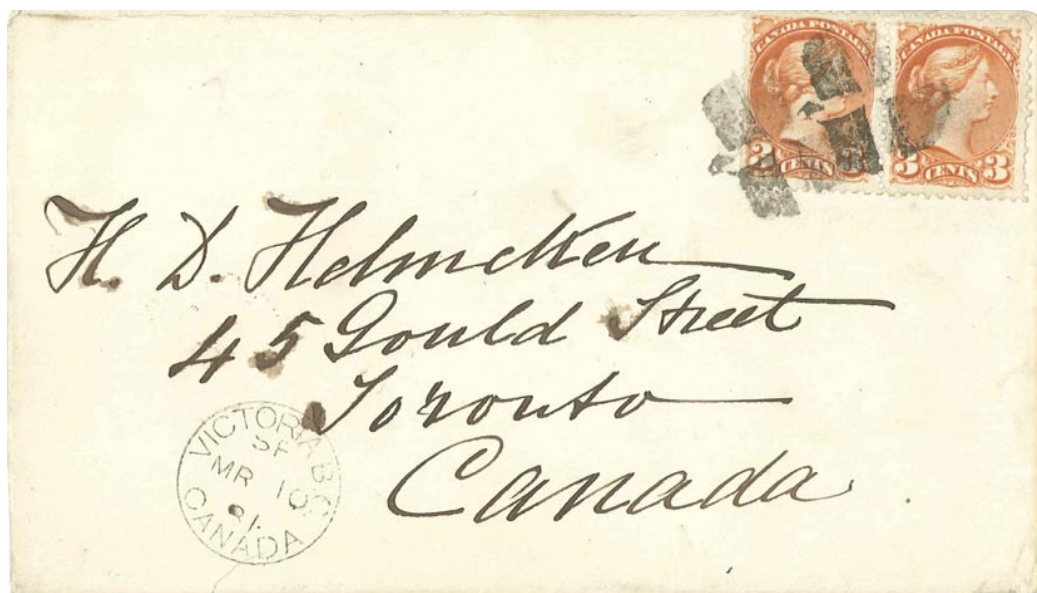 CANADA POSTAGE CANADA POSTAGE
3 CENTS 3 CENTS 3
H. D. Helmcken
45 Gould Street
Toronto
Canada
VICTORIA B.C.
SF
MR 10
81.
CANADA